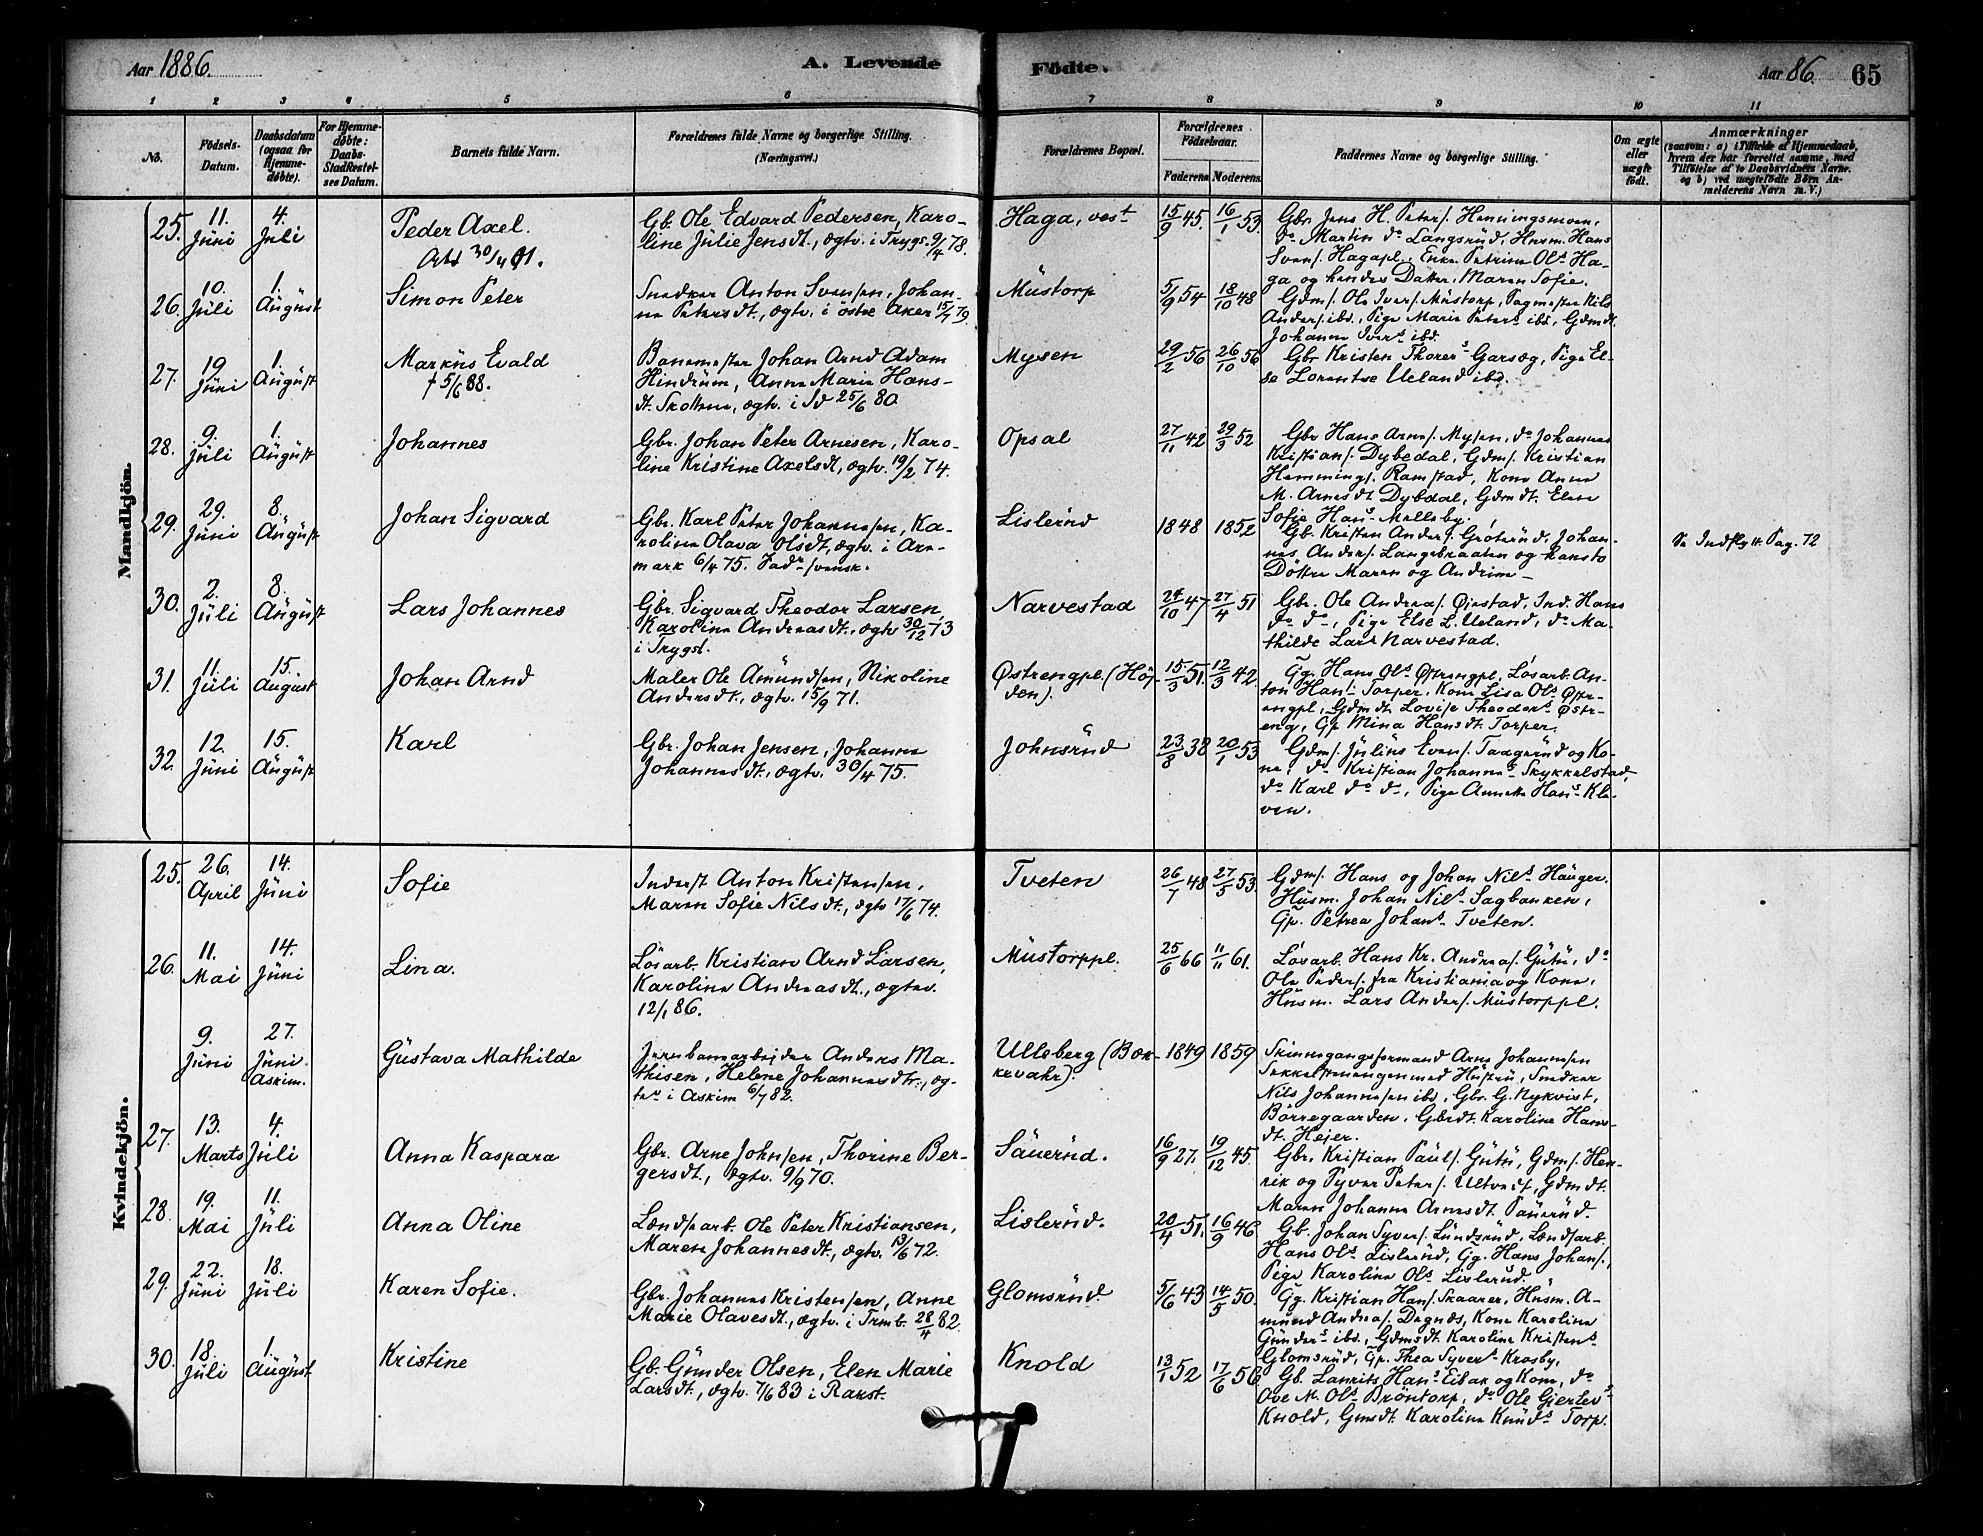 Aar 1886.
A. Levende Födte.
Aar 86. 65
1 2 3 4 5 6 7 8 9 10 11
No.
Födsels-Datum.
Daabsdatum (ogsaa for Hjemme-døbte).
For Hjemme-døbte: Daabs-Stadfæstel-ses Datum.
Barnets fulde Navn.
Forældrenes fulde Navne og borgerlige Stilling.
(Næringsvei.)
Forældrenes Bopæl.
Forældrenes Födselsaar.
Faderens Moderens
Faddernes Navne og borgerlige Stilling.
Om ægte eller uægte födt.
Anmærkninger
(saasom: a) i Tilfælde af Hjemmedaab, hvem der har forrettet samme, med Tilföielse af to Daabsvidners Navne. og b) ved uægtefödte Börn Anmelderens Navn m. V.)
Mandkjön.
25. 11. Juni 4. Juli
Peder Axel.
Att 30/4 01.
Gb. Ole Edvard Pedersen, Karo-
line Julie Jensdt., ægtv. i Trygs. 9/4 78.
Haga, vest
15/9 45. 16/1 53.
Gbr. Jens H. Peters. Henningsmoen,
do Martin do Langsrud, Husm. Hans
Svens. Hagapl., Enke Petrine Ols Ha-
ga og hendes Datter Maren Sofie.
26. 10. Juli 1. August
Simon Peter
Snedker Anton Svensen, Johan-
ne Petersdt., ægtv. i östre Aker 15/7 79.
Mustorp
5/9 54 18/10 48
Gdm. Ole Ivers. Mustorp, Pagmester Nils
Anders. ibd., Pige Marie Peters ibd, Gdmdt.
Johanne Ivers ibd.
27. 19. Juni 1. August
Markus Evald
† 5/6 88.
Banemester Johan Arnd Adam
Hindrum, Anne Marie Hans-
dt. Skotten, ægtv. i Sd 25/6 80.
Mysen
29/2 56 26/10 56
Gbr Kristen Thorers Garseg, Pige El-
se Lorentse Ueland ibd.
28. 9. Juli 1. August
Johannes
Gbr. Johan Peter Arnesen, Karo-
line Kristine Axelsdt, ægtv. 19/2 74.
Opsal
27/11 42 29/3 52
Gbr Hans Arnes. Mysen, do Johannes
Kristians. Dybedal, Gdms. Kristian
Hemmings. Ramstad, Kone Anne
M. Arnesdt Dybdal, Gdmdt. Elen
Sofie Hans Melleby.
29. 29. Juni 8. August
Johan Sigvard
Gbr. Karl Peter Johannesen, Ka-
roline Olava Olsdt, ægtv. i Are-
mark 6/4 75. Fadr svensk.
Lislerud
1848 1852
Gb. Kristen Anders. Gröterud, Johan-
nes Anders. Langebraaten og hans to
Döttre Maren og Andrine –
Se Indflytt. Pag. 72
30. 2. Juli 8. August
Lars Johannes
Gbr. Sigvard Theodor Larsen
Karoline Andreasdt., ægtv 30/12 73
i Trygst.
Narvestad
24/10 47 27/4 51
Gbr. Ole Andreas. Ørstad, Ind. Hans
do do, Pige Else L. Ueland, do Ma-
thilde Lars Narvestad.
31. 11. Juli 15. August
Johan Arnd
Maler Ole Amundsen, Nikoline
Andersdt., ægtv. 15/9 71.
Østrengpl. (Höy-
den).
15/3 51. 12/3 42
Gg. Hans Ols Østrengpl, Lösarb. An-
ton Hans. Torper, Kone Lisa Ols Øst-
rengpl, Gdmdt. Lovise Theodors Østr-
eng, Gp Mina Hansdt. Torper.
32. 12. Juni 15. August
Karl
Gbr. Johan Jensen, Johanne
Johannesdt., ægtv. 30/4 75.
Johnsrud
23/8 38 20/1 53
Gdms. Julius Evens. Taagerud og Ko-
ne, do Kristian Johannes Skykkelstad,
do Karl do do, Pige Annette Hans Kle-
ven.
Kvindekjön.
25. 26. April 14. Juni
Sofie
Inderst Anton Kristensen,
Maren Sofie Nilsdt., ægtv 17/6 74.
Tveten
26/7 48 27/5 53.
Gdms. Hans og Johan Nils Hauger,
Husm. Johan Nils Sagbanken,
Gp. Petrea Johans Tveten.
26. 11. Mai 14. Juni
Lina.
Lösarb. Kristian Arnd Larsen,
Karoline Andreasdt., ægtev.
12/1 86.
Mustorppl.
25/6 66 11/11 61.
Lösarb. Hans Kr. Andreas. Gutu, do
Ole Peders. fra Kristiania og Kone,
Husm. Lars Anders. Mustorppl.
9. Juni 27. Juni Askim.
Gustava Mathilde
Jernbanearbejder Anders Ma-
thisen, Helene Johannesdtr., æg-
tev i Askim 6/7 82.
Ulleberg (Bæk-
kevahr).
1849 1859
Skinnegangsformand Arne Johannesen
med Hustru, Snedker
Nils Johannesen ibd, Gbr. G. Nykvist,
Börregaarden, Gbrdt. Karoline Hans-
dt. Hejer.
27. 13. Marts 4. Juli
Anna Kaspara
Gbr. Arne Johnsen, Thorine Ber-
gersdt., ægtv. 9/9 70.
Säuerud.
16/9 27. 19/12 45.
Gbr. Kristian Pauls. Gutu, Gdms. Hen-
rik og Syver Peters. Ultvedt, Gdmdt.
Maren Johanne Arnesdt. Säuerud.
28. 19. Mai 11. Juli
Anna Oline
Lændsarb. Ole Peter Kristiansen,
Maren Johannesdt., ægtv. 13/6 72.
Lislerud.
20/4 51. 16/9 46
Gb. Johan Syvers. Lundsrud, Lændsarb.
Hans Ols Lislerud, Gg. Hans Johans.,
Pige Karoline Ols Lislerud.
29. 22. Juni 18. Juli
Karen Sofie.
Gbr. Johannes Kristensen, Anne
Marie Olavesdt., ægtv. i Trmb. 28/4 82.
Glomsrud
5/6 43 14/5 50.
Gg. Kristian Hans. Skaarer, Husm. A-
mund Andreas. Degnæs, Kone Karoline
Gunders ibd., Gdmsdt. Karoline Kristens
Glomsrud, Gp. Thea Syvers Krosby.
30. 18. Juli 1. August
Kristine
Gb. Gunder Olsen, Elen Marie
Larsdt., ægtv. 7/6 83 i Rakst.
Knold
13/1 52 17/6 56
Gb. Laurits Hans Eibak og Kone, do
Ove M. Ols Bröntorp, do Ole Gjerløvs
Knold, Gmsdt. Karoline Knuds Torp.